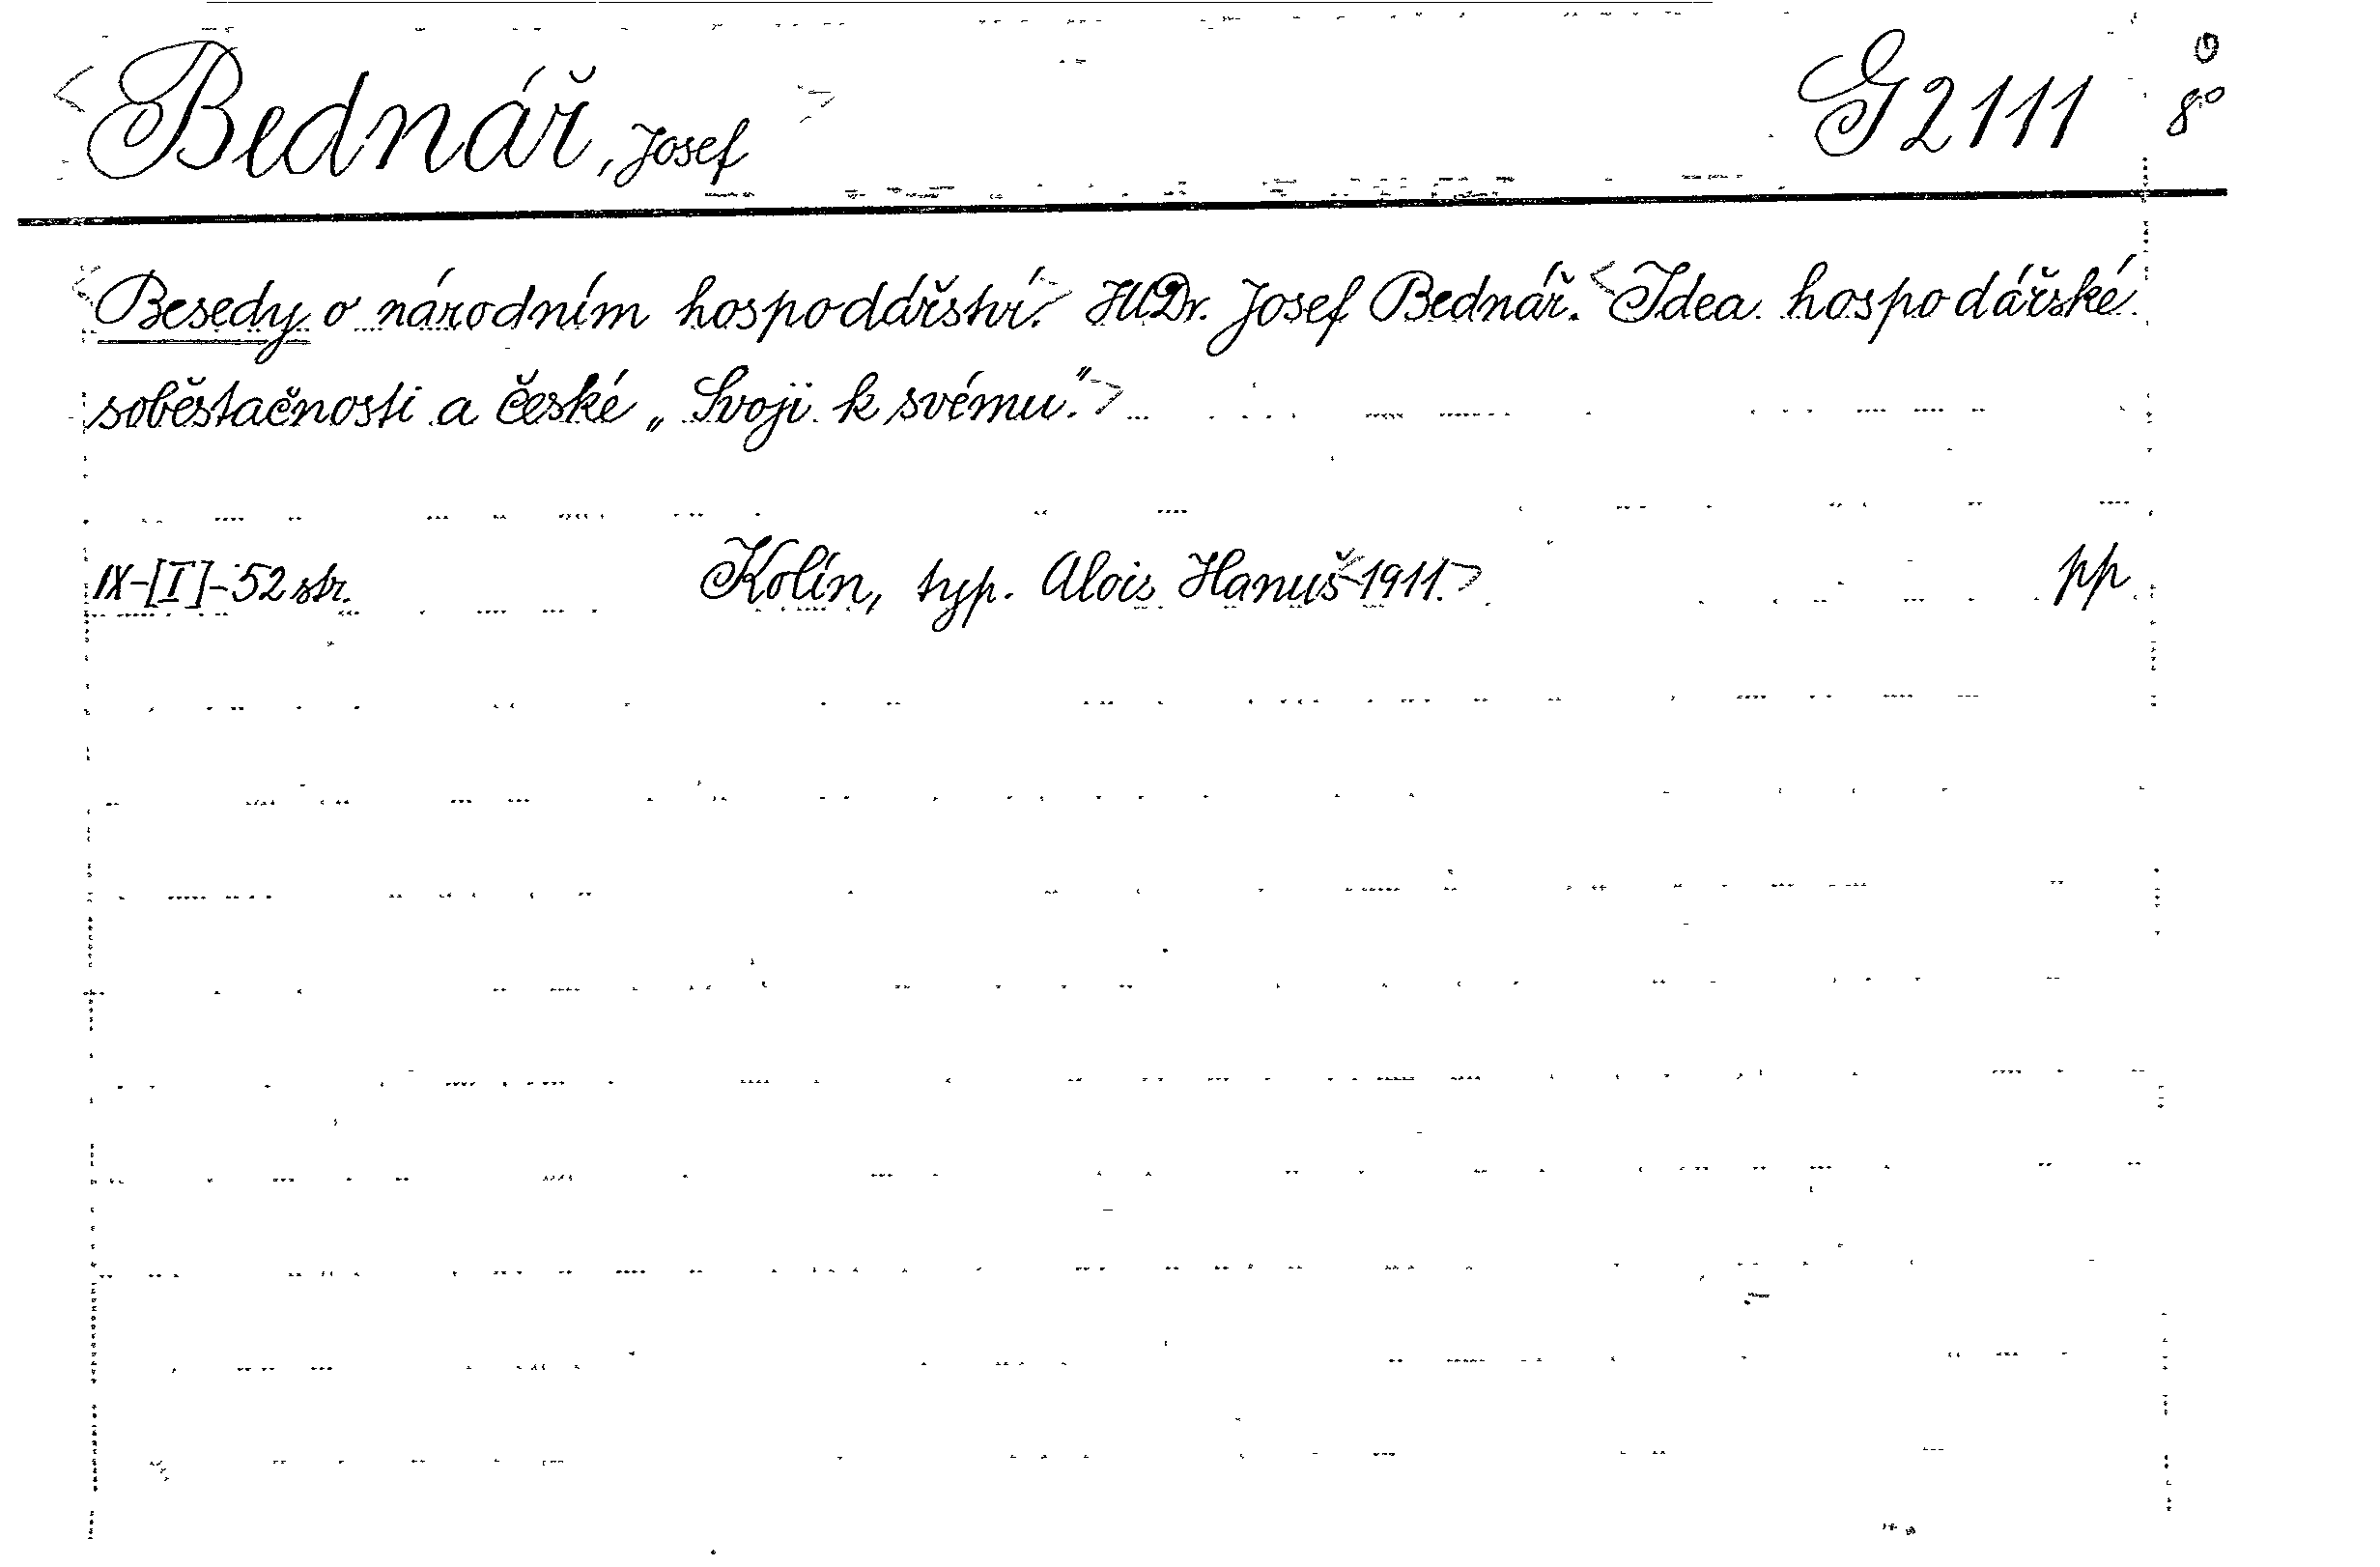 <Bednář, Josef> G 2111 8°
<Besedy o národním hospodářství.> JUDr. Josef Bednář. <Idea hospodářské
soběstačnosti a české „Svoji k svému.">
IX-[I]-52 str. Kolín, typ. Alois Hanuš <1911.> pp